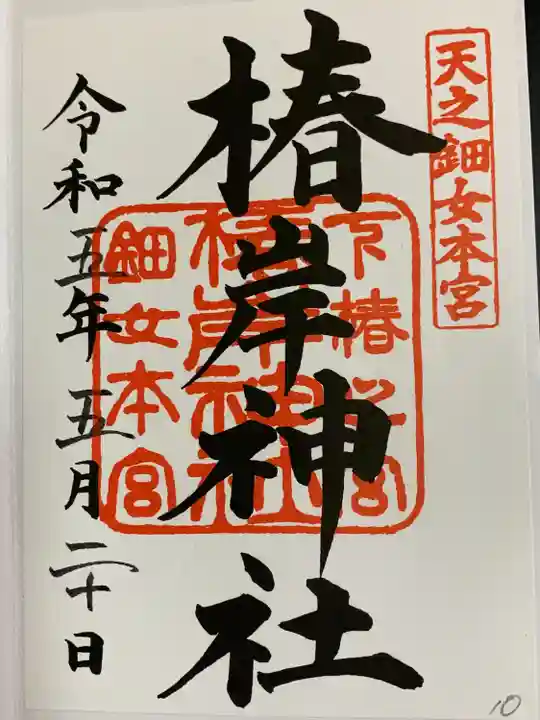 天之鈿女本宮
椿岸神社
下椿
椿岸神社
鈿女本宮
令和五年五月二十日
10